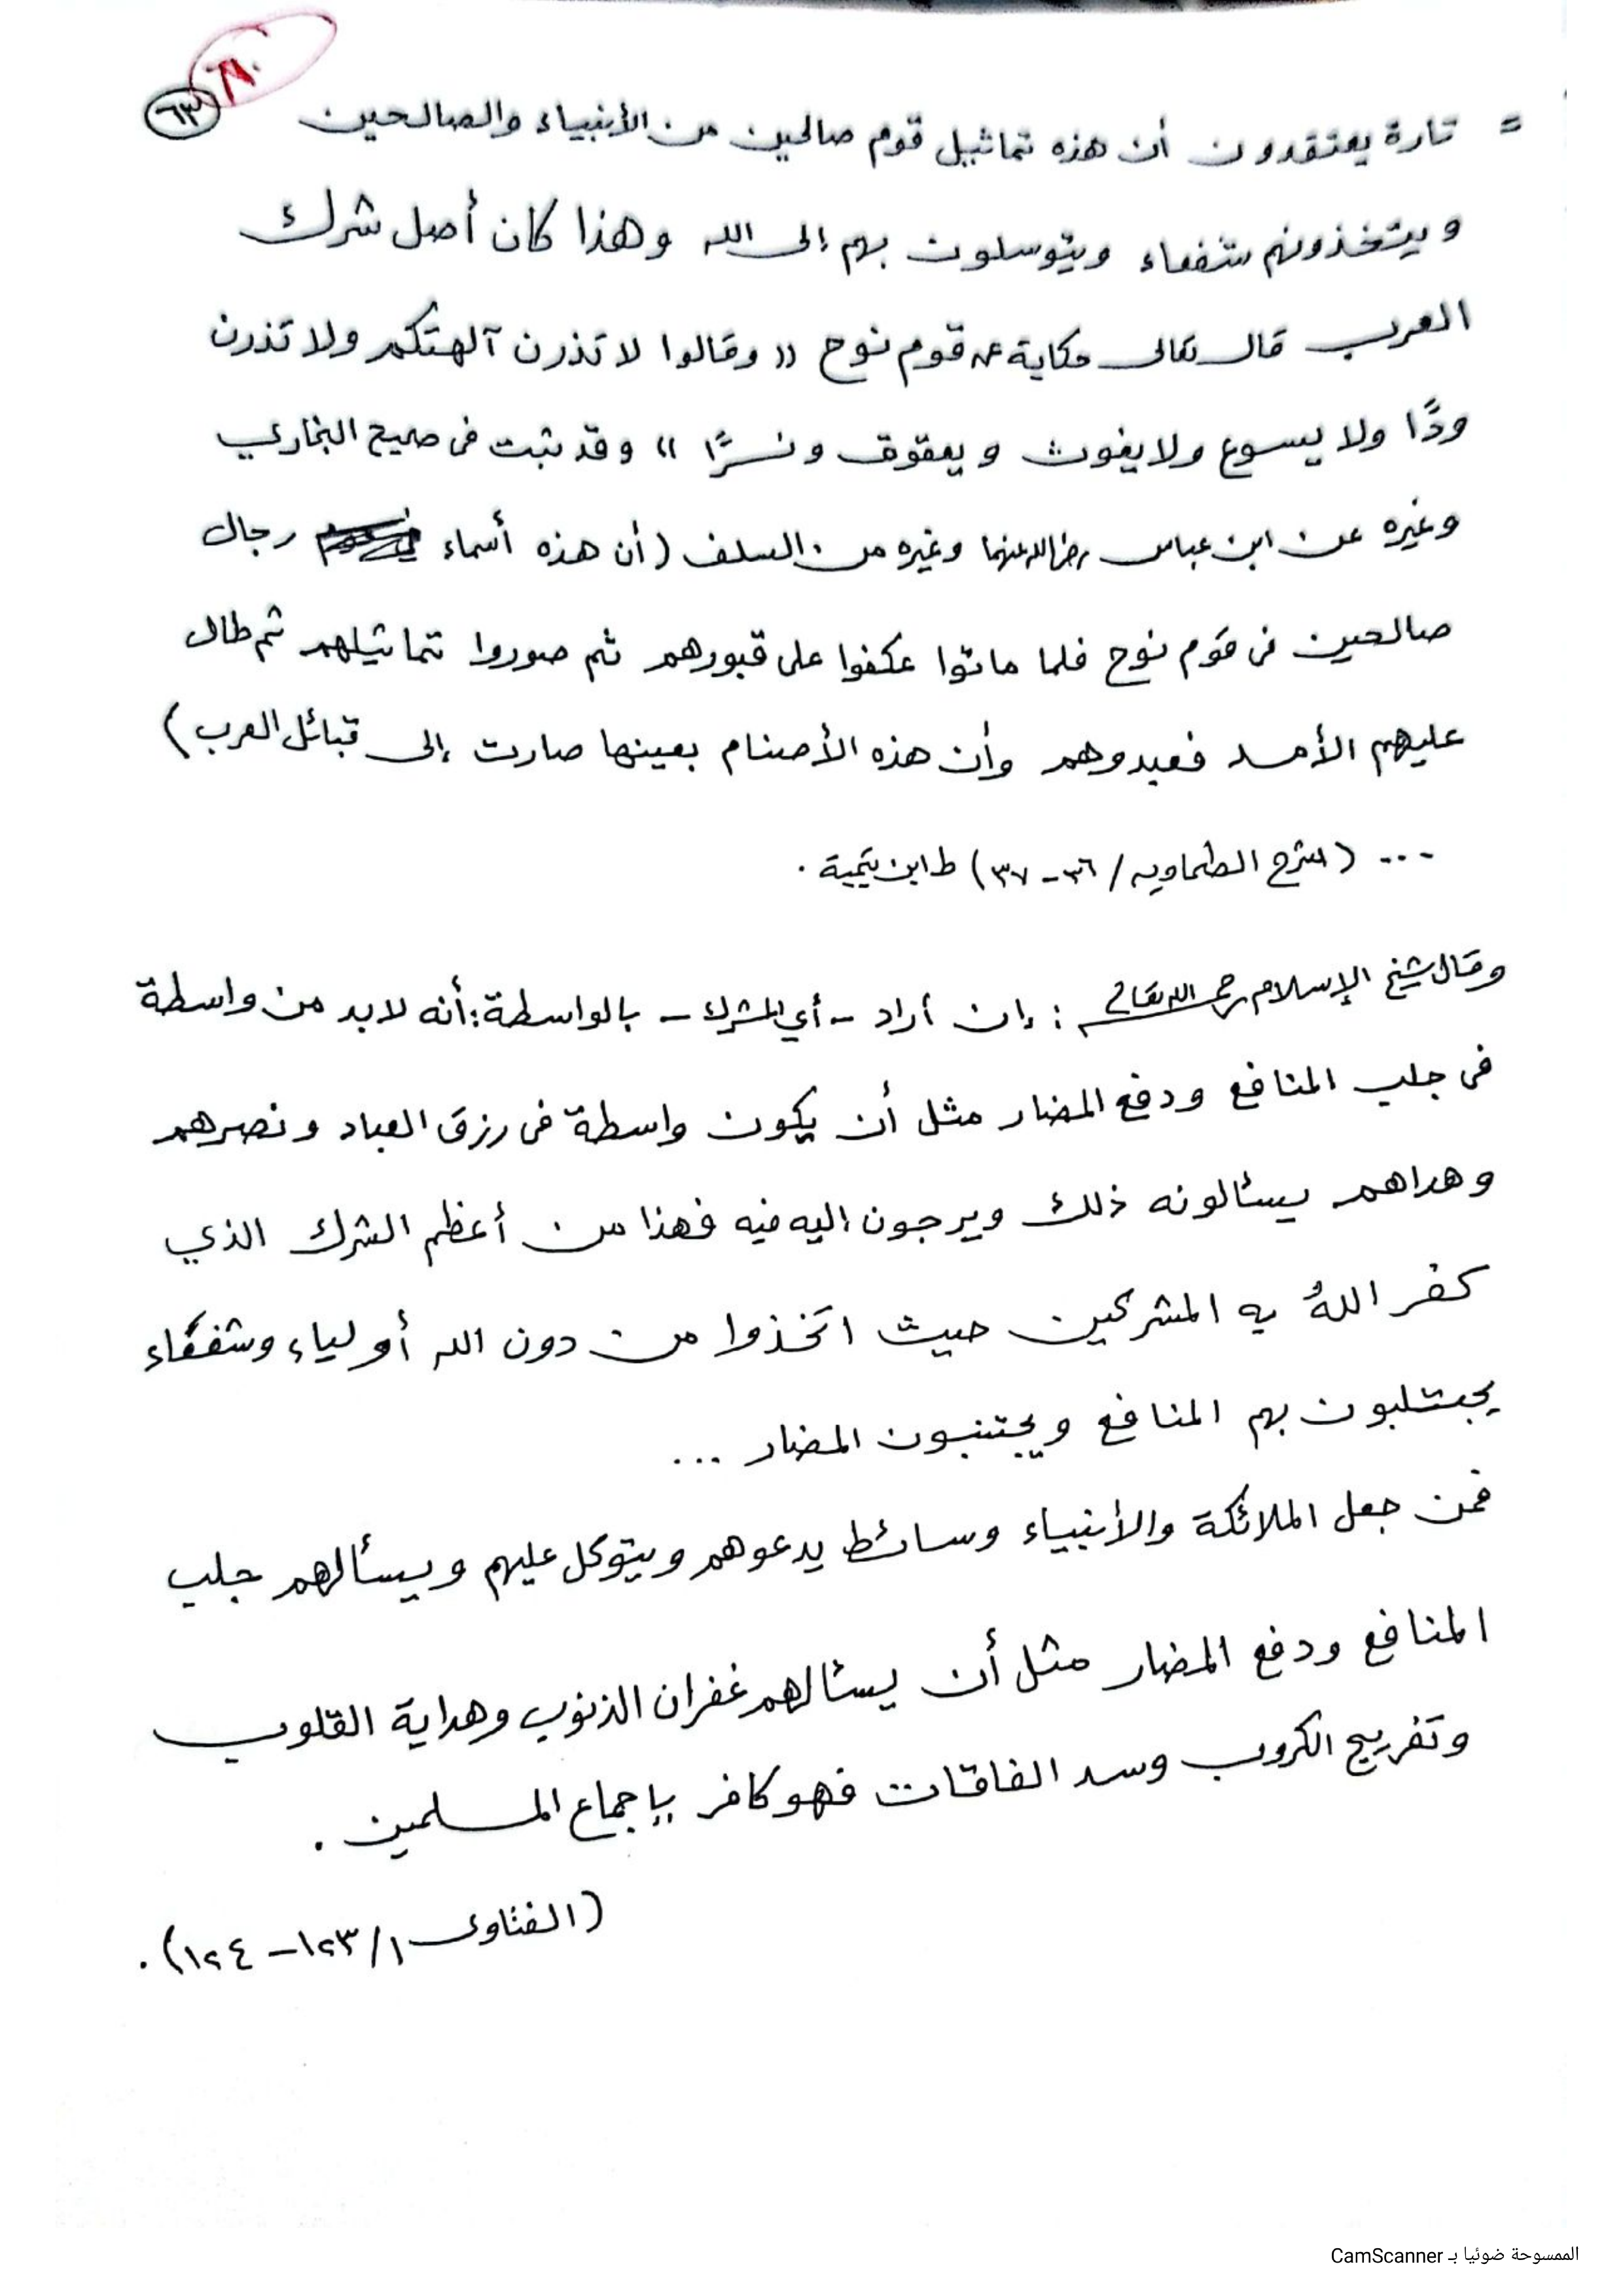 ٦٣
= تارة يعتقدون أن هذه تماثيل قوم صالحين من الأنبياء والصالحين
ويتخذونهم شفعاء ويتوسلون بهم إلى الله وهذا كان أصل شرك
العرب قال تعالى حكاية عن قوم نوح (( وقالوا لا تذرن آلهتكم ولا تذرن
ودًّا ولا يسوع ولا يغوث ويعقوق ونسرًا )) وقد ثبت في صحيح البخاري
وغيره عن ابن عباس رضي الله عنهما وغيره من السلف (أن هذه أسماء رجال
صالحين في قوم نوح فلما ماتوا عكفوا على قبورهم ثم صوروا تماثيلهم ثم طال
عليهم الأمد فعبدوهم وأن هذه الأصنام بعينها صارت إلى قبائل العرب)
... (شرح الطحاوية / ٣٦ - ٣٧) ط ابن تيمية .
وقال شيخ الإسلام رحمه الله تعالى : إن أراد - أي المشرك - بالواسطة : أنه لابد من واسطة
في جلب المنافع ودفع المضار مثل أن يكون واسطة في رزق العباد ونصرهم
وهداهم يسئالونه ذلك ويرجون اليه فيه فهذا من أعظم الشرك الذي
كفر اللهُ به المشركين حيث اتخذوا من دون الله أولياء وشفعاء
يجتلبون بهم المنافع ويجتنبون المضار ...
فمن جعل الملائكة والأنبياء وسائط يدعوهم ويتوكل عليهم ويسألهم جلب
المنافع ودفع المضار مثل أن يسئالهم غفران الذنوب وهداية القلوب
وتفريج الكروب وسد الفاقات فهو كافر بإجماع المسلمين .
(الفتاوى ١ / ١٢٣ - ١٢٤) .
الممسوحة ضوئيا بـ CamScanner